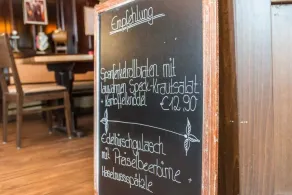 Empfehlung
Spanferkelrollbraten mit
lauwarmen Speck-Krautsalat
+ Kartoffelknödel €12,90
Edelhirschgulasch
mit Preiselbeerbirne
Haselnussspätzle